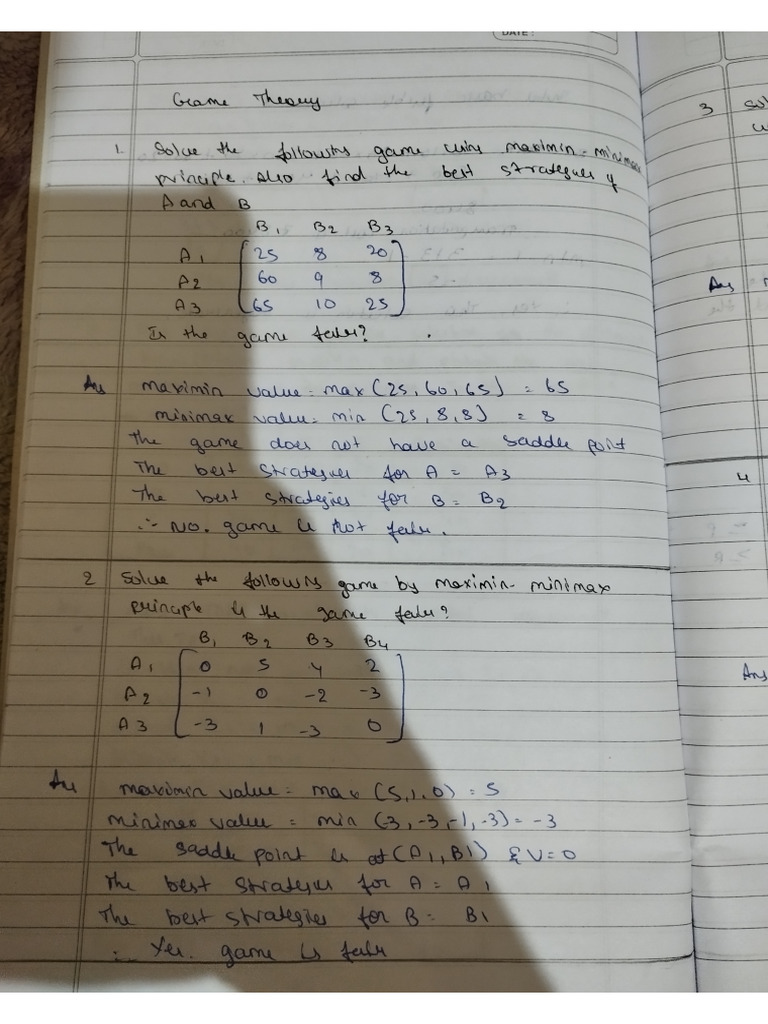 DATE:
Game Theory
1. Solve the following game using maximin-minimax
principle. Also find the best strategies of
A and B
B1 B2 B3
A1 [25 8 20]
A2 [60 9 8]
A3 [65 10 25]
Is the game fair?
Ans maximin value = max (25, 60, 65) = 65
minimax value = min (25, 8, 8) = 8
The game does not have a saddle point
The best strategies for A = A3
The best strategies for B = B2
∴ No. game is not fair.
2 Solve the following game by maximin-minimax
principle is the game fair?
B1 B2 B3 B4
A1 [0 5 4 2]
A2 [-1 0 -2 -3]
A3 [-3 1 -3 0]
Ans maximin value = max (5, 1, 0) = 5
minimax value = min (-3, -3, -1, -3) = -3
The saddle point is at (A1, B1) & V=0
The best strategies for A = A1
The best strategies for B = B1
∴ Yes. game is fair
3
Ans
4
Ans